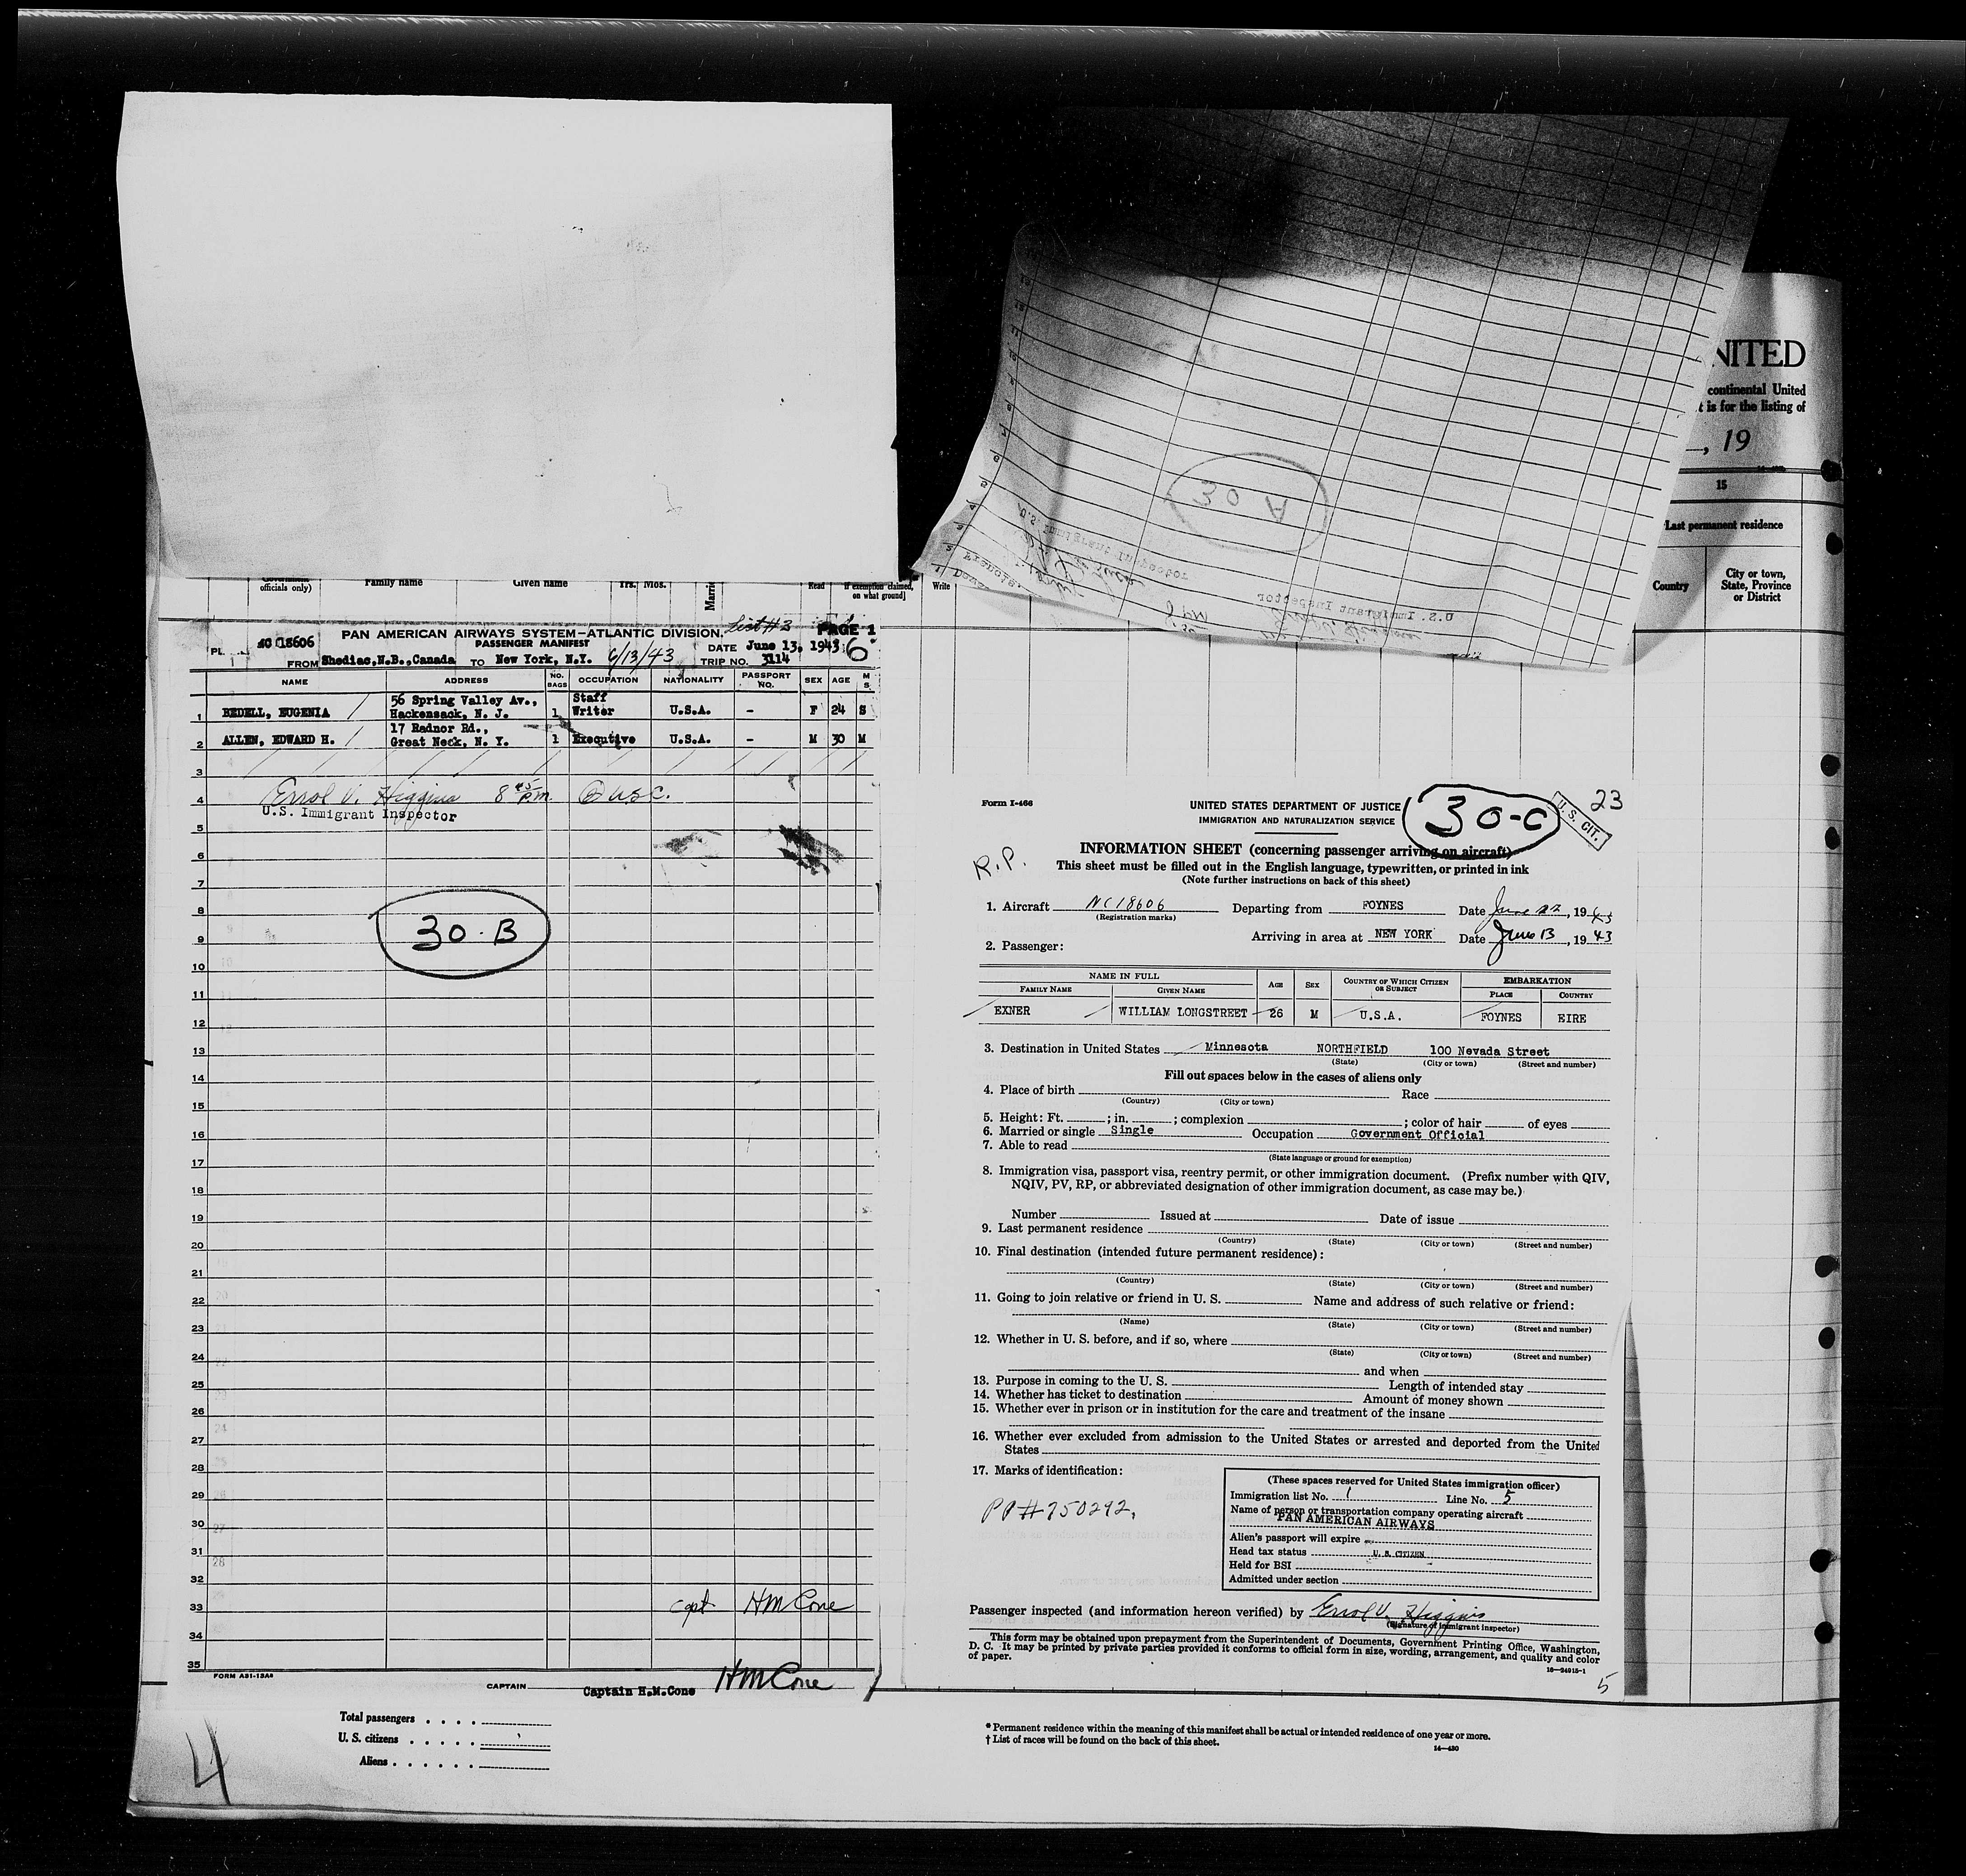 NITED
continental United
t is for the listing of
, 19
15
Last permanent residence
Country
City or town,
State, Province
or District
30 A
U.S. Immigrant Inspector
U.S. Immigrant Inspector
officials only)
Family name
Given name
Yrs.
Mos.
Read
if exemption claimed,
on what ground]
Write
List #3
PAGE 1
6
PAN AMERICAN AIRWAYS SYSTEM—ATLANTIC DIVISION.
PASSENGER MANIFEST
NC 18606
DATE June 13, 1943
FROM Shediac,N.B.,Canada TO New York, N.Y. 6/13/43 TRIP NO. 3114
NAME ADDRESS NO. BAGS OCCUPATION NATIONALITY PASSPORT NO. SEX AGE M S
1 BEDELL, EUGENIA 56 Spring Valley Av., Hackensack, N. J. 1 Staff Writer U.S.A. - F 24 S
2 ALLEN, EDWARD H. 17 Radnor Rd., Great Neck, N. Y. 1 Executive U.S.A. - M 30 M
3
4 Errol V. Higgins 8 45 P.m. USC.
U.S. Immigrant Inspector
5
6
7
8
30-B
9
10
11
12
13
14
15
16
17
18
19
20
21
22
23
24
25
26
27
28
29
30
31
32
33 capt HM Cone
34
35
FORM A31-13A8
CAPTAIN Captain H.M.Cone HM Cone
Total passengers
U. S. citizens
Aliens
4
Form I-466
UNITED STATES DEPARTMENT OF JUSTICE
IMMIGRATION AND NATURALIZATION SERVICE
30-C
U. S. CIT.
23
R.P.
INFORMATION SHEET (concerning passenger arriving on aircraft)
This sheet must be filled out in the English language, typewritten, or printed in ink
(Note further instructions on back of this sheet)
1. Aircraft NC18606 Departing from FOYNES Date June 12, 1943
(Registration marks)
Arriving in area at NEW YORK Date June 13, 1943
2. Passenger:
NAME IN FULL
FAMILY NAME GIVEN NAME AGE SEX COUNTRY OF WHICH CITIZEN OR SUBJECT EMBARKATION
PLACE COUNTRY
EXNER WILLIAM LONGSTREET 26 M U.S.A. FOYNES EIRE
3. Destination in United States Minnesota NORTHFIELD 100 Nevada Street
(State) (City or town) (Street and number)
Fill out spaces below in the cases of aliens only
4. Place of birth Race
(Country) (City or town)
5. Height: Ft. ; in. ; complexion ; color of hair of eyes
6. Married or single Single Occupation Government Official
7. Able to read
(State language or ground for exemption)
8. Immigration visa, passport visa, reentry permit, or other immigration document. (Prefix number with QIV,
NQIV, PV, RP, or abbreviated designation of other immigration document, as case may be.)
Number Issued at Date of issue
9. Last permanent residence
(Country) (State) (City or town) (Street and number)
10. Final destination (intended future permanent residence):
(Country) (State) (City or town) (Street and number)
11. Going to join relative or friend in U. S. Name and address of such relative or friend:
(Name) (State) (City or town) (Street and number)
12. Whether in U. S. before, and if so, where
(State) (City or town) (Street and number)
and when
13. Purpose in coming to the U. S. Length of intended stay
14. Whether has ticket to destination Amount of money shown
15. Whether ever in prison or in institution for the care and treatment of the insane
16. Whether ever excluded from admission to the United States or arrested and deported from the United
States
17. Marks of identification:
PP#750292.
(These spaces reserved for United States immigration officer)
Immigration list No. 1 Line No. 5
Name of person or transportation company operating aircraft
PAN AMERICAN AIRWAYS
Alien's passport will expire
Head tax status U. S. CITIZEN
Held for BSI
Admitted under section
Passenger inspected (and information hereon verified) by Errol V. Higgins
(Signature of immigrant inspector)
This form may be obtained upon prepayment from the Superintendent of Documents, Government Printing Office, Washington,
D. C. It may be printed by private parties provided it conforms to official form in size, wording, arrangement, and quality and color
of paper.
16—24915-1
5
* Permanent residence within the meaning of this manifest shall be actual or intended residence of one year or more.
† List of races will be found on the back of this sheet.
14—430